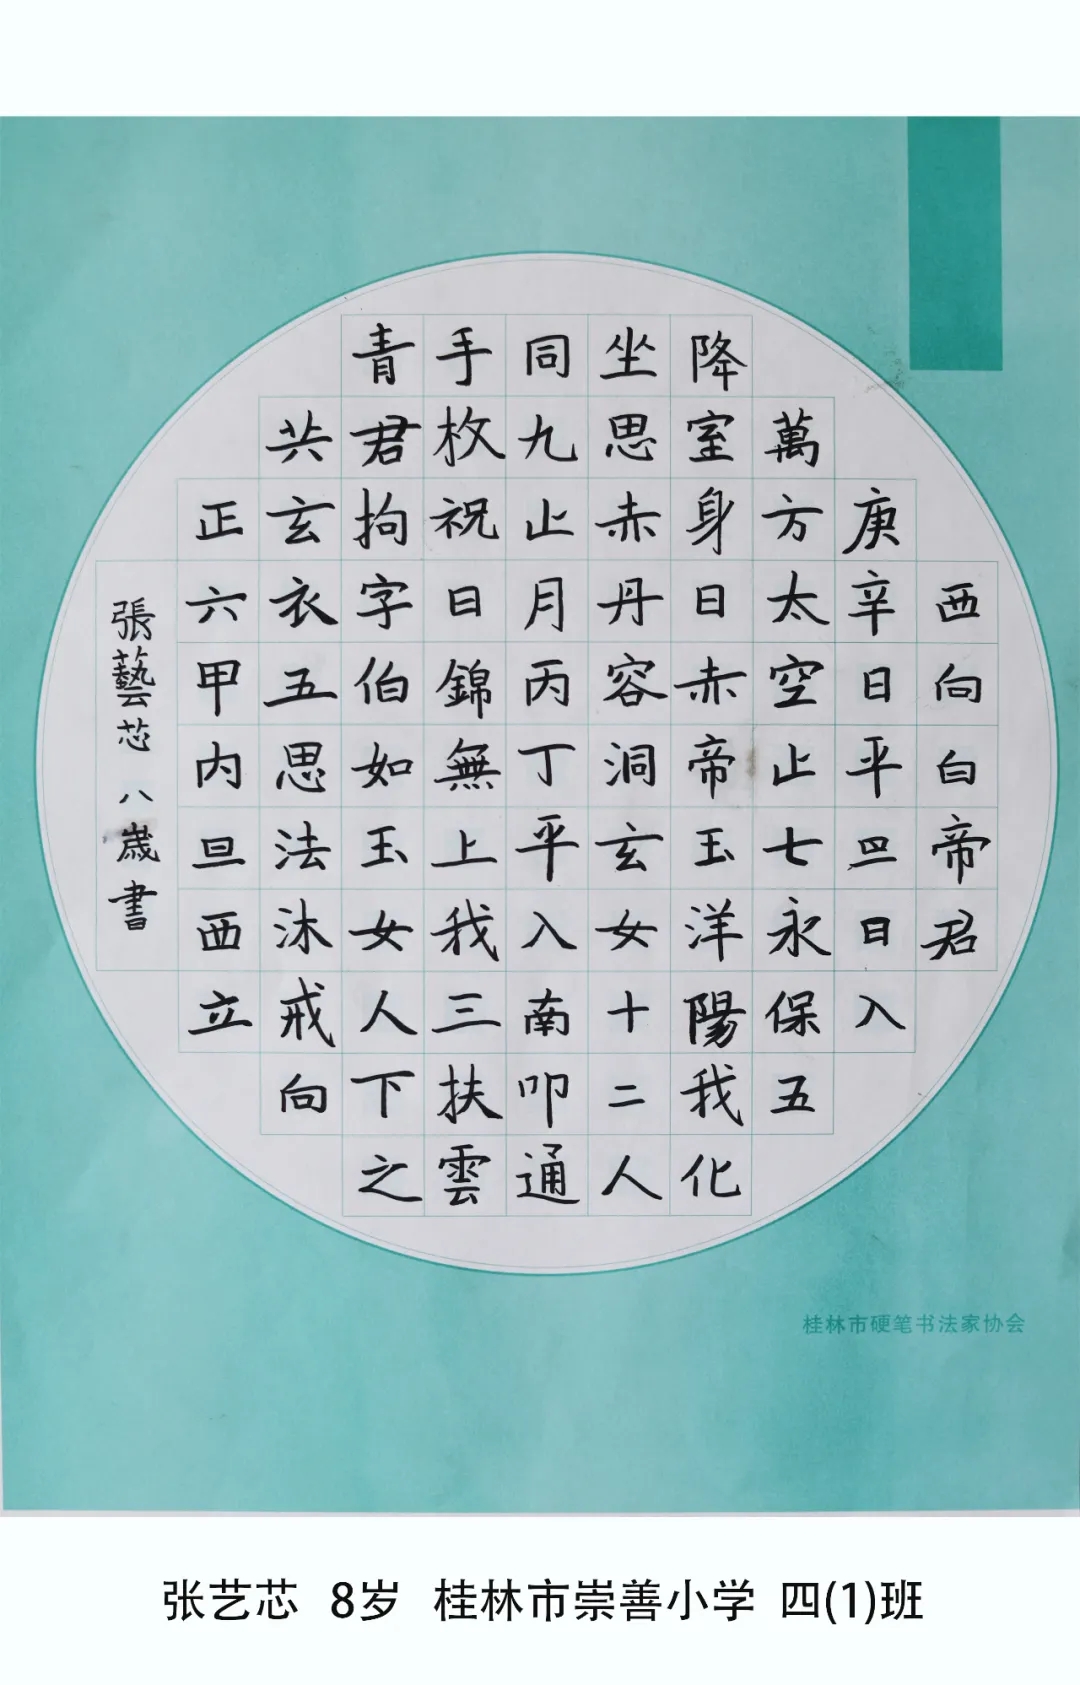 西向白帝君
庚辛日平旦日入
萬方太空止七永保五
降室身日赤帝玉洋陽我化
坐思赤丹容洞玄女十二人
同九止月丙丁平入南叩通
手枚祝日錦無上我三扶雲
青君拘字伯如玉女人下之
共玄衣五思法沐戒向
正六甲内旦西立
張藝芯八歲書
桂林市硬笔书法家协会
张艺芯 8岁 桂林市崇善小学 四(1)班